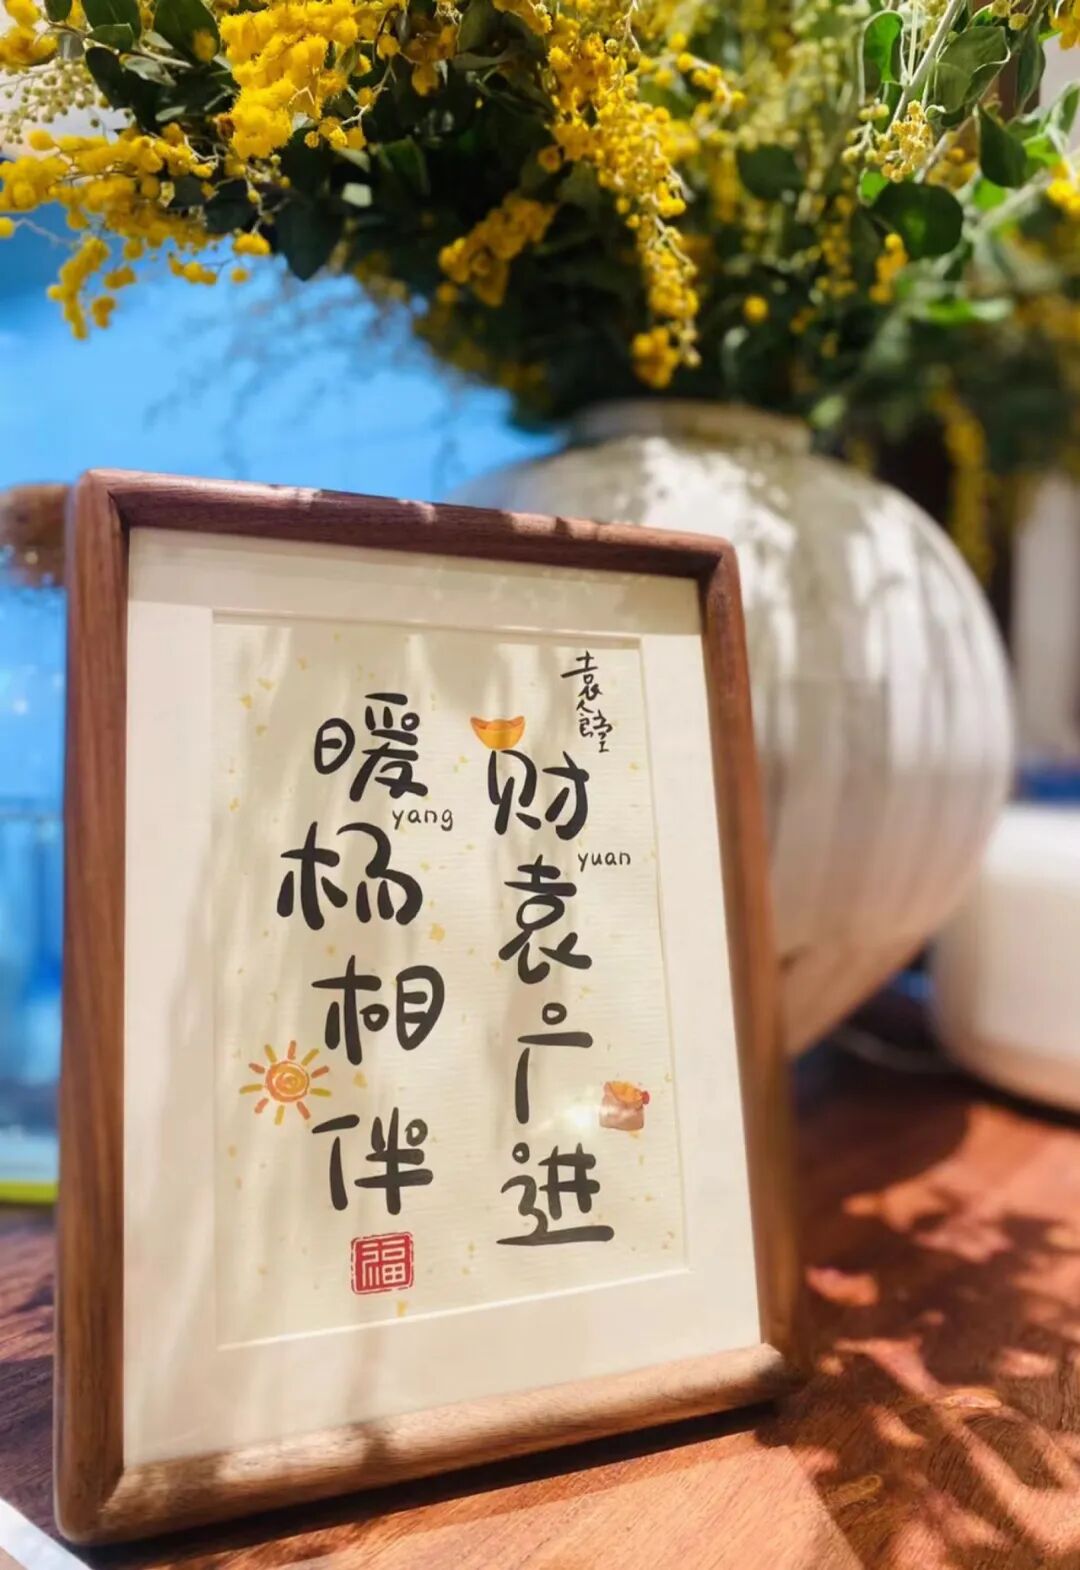 袁食堂
财袁广进
yuan
暖杨相伴
yang
福